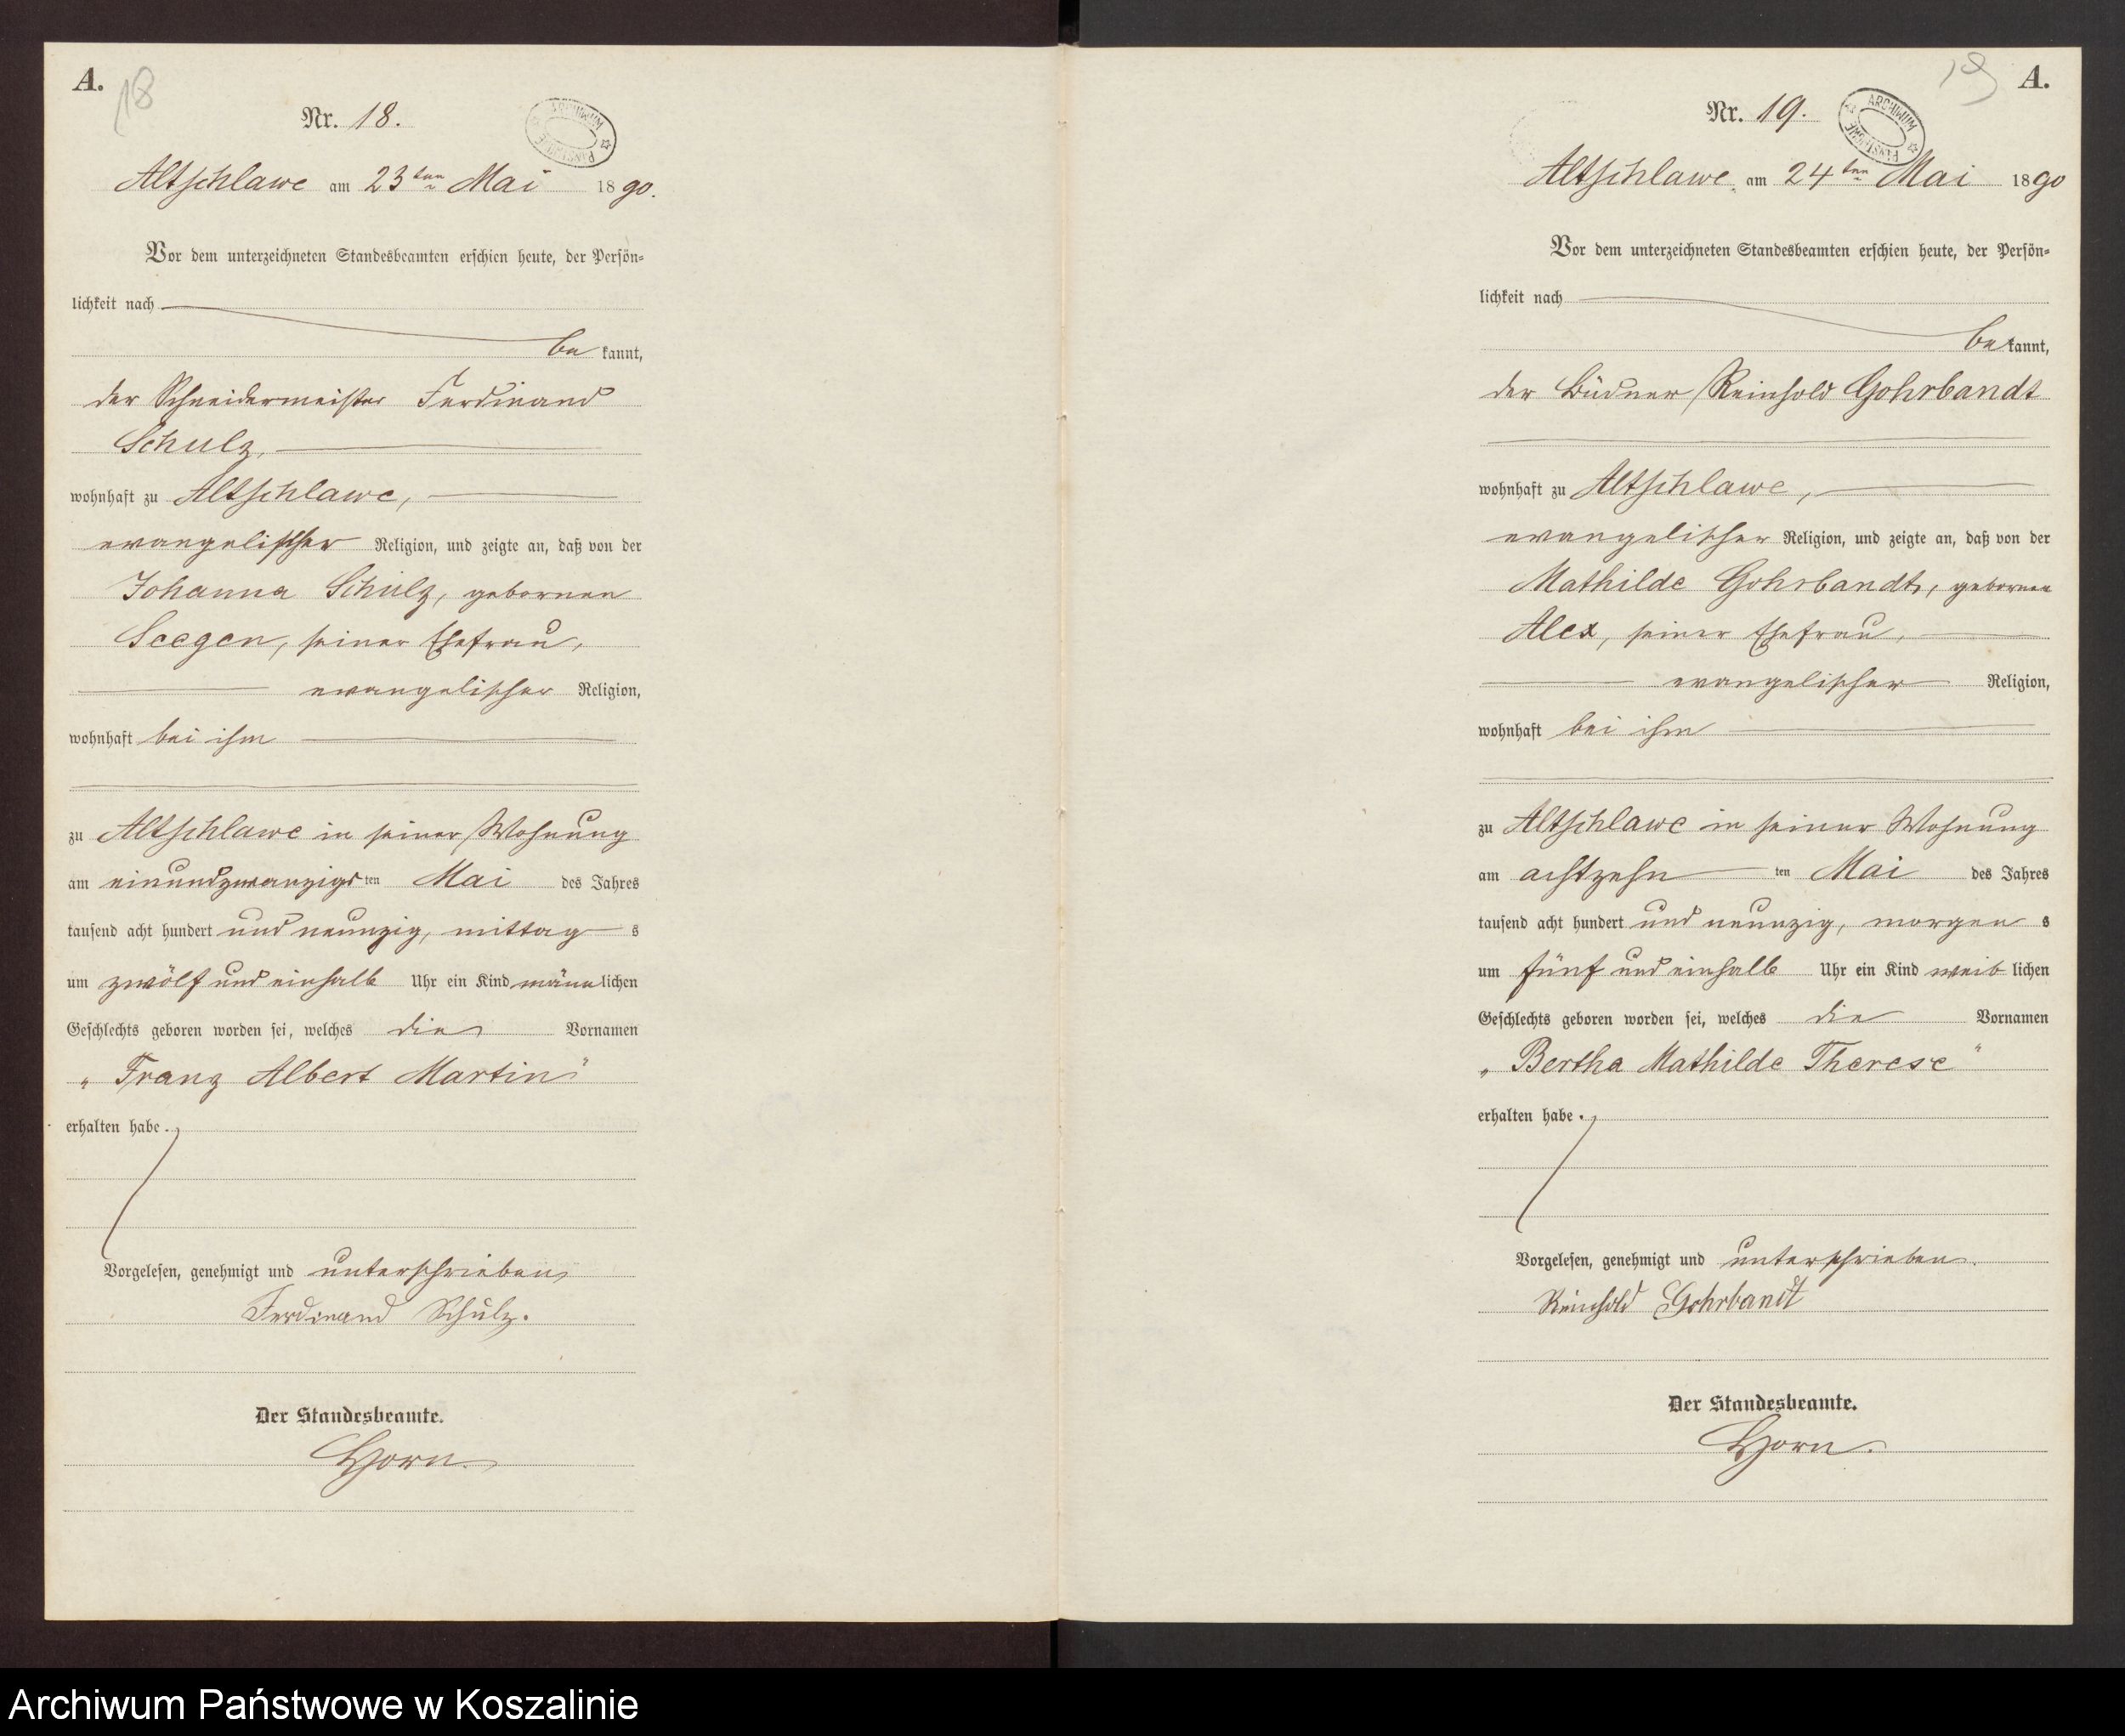 A.
18
Nr. 18.
ARCHIWUM PAŃSTWOWE
Altschlawe am 23ten Mai 1890.
Vor dem unterzeichneten Standesbeamten erschien heute, der Persön-
lichkeit nach
be kannt,
der Schneidermeister Ferdinand
Schulz,
wohnhaft zu Altschlawe,
evangelischer Religion, und zeigte an, daß von der
Johanna Schulz, gebornen
Seegen, seiner Ehefrau,
evangelischer Religion,
wohnhaft bei ihm
zu Altschlawe in seiner Wohnung
am einundzwanzigs ten Mai des Jahres
tausend acht hundert und neunzig, mittag s
um zwölf und einhalb Uhr ein Kind männ lichen
Geschlechts geboren worden sei, welches die Vornamen
„Franz Albert Martin"
erhalten habe.
Vorgelesen, genehmigt und unterschrieben
Ferdinand Schulz.
Der Standesbeamte.
Horn.
19
A.
Nr. 19.
ARCHIWUM PAŃSTWOWE
Altschlawe, am 24ten Mai 1890
Vor dem unterzeichneten Standesbeamten erschien heute, der Persön-
lichkeit nach
be kannt,
der Büdner Reinhold Gohrbandt
wohnhaft zu Altschlawe,
evangelischer Religion, und zeigte an, daß von der
Mathilde Gohrbandt, gebornen
Alex, seiner Ehefrau,
evangelischer Religion,
wohnhaft bei ihm
zu Altschlawe in seiner Wohnung
am achtzehn ten Mai des Jahres
tausend acht hundert und neunzig, morgen s
um fünf und einhalb Uhr ein Kind weib lichen
Geschlechts geboren worden sei, welches die Vornamen
„Bertha Mathilde Therese"
erhalten habe.
Vorgelesen, genehmigt und unterschrieben.
Reinhold Gohrbandt
Der Standesbeamte.
Horn.
Archiwum Państwowe w Koszalinie